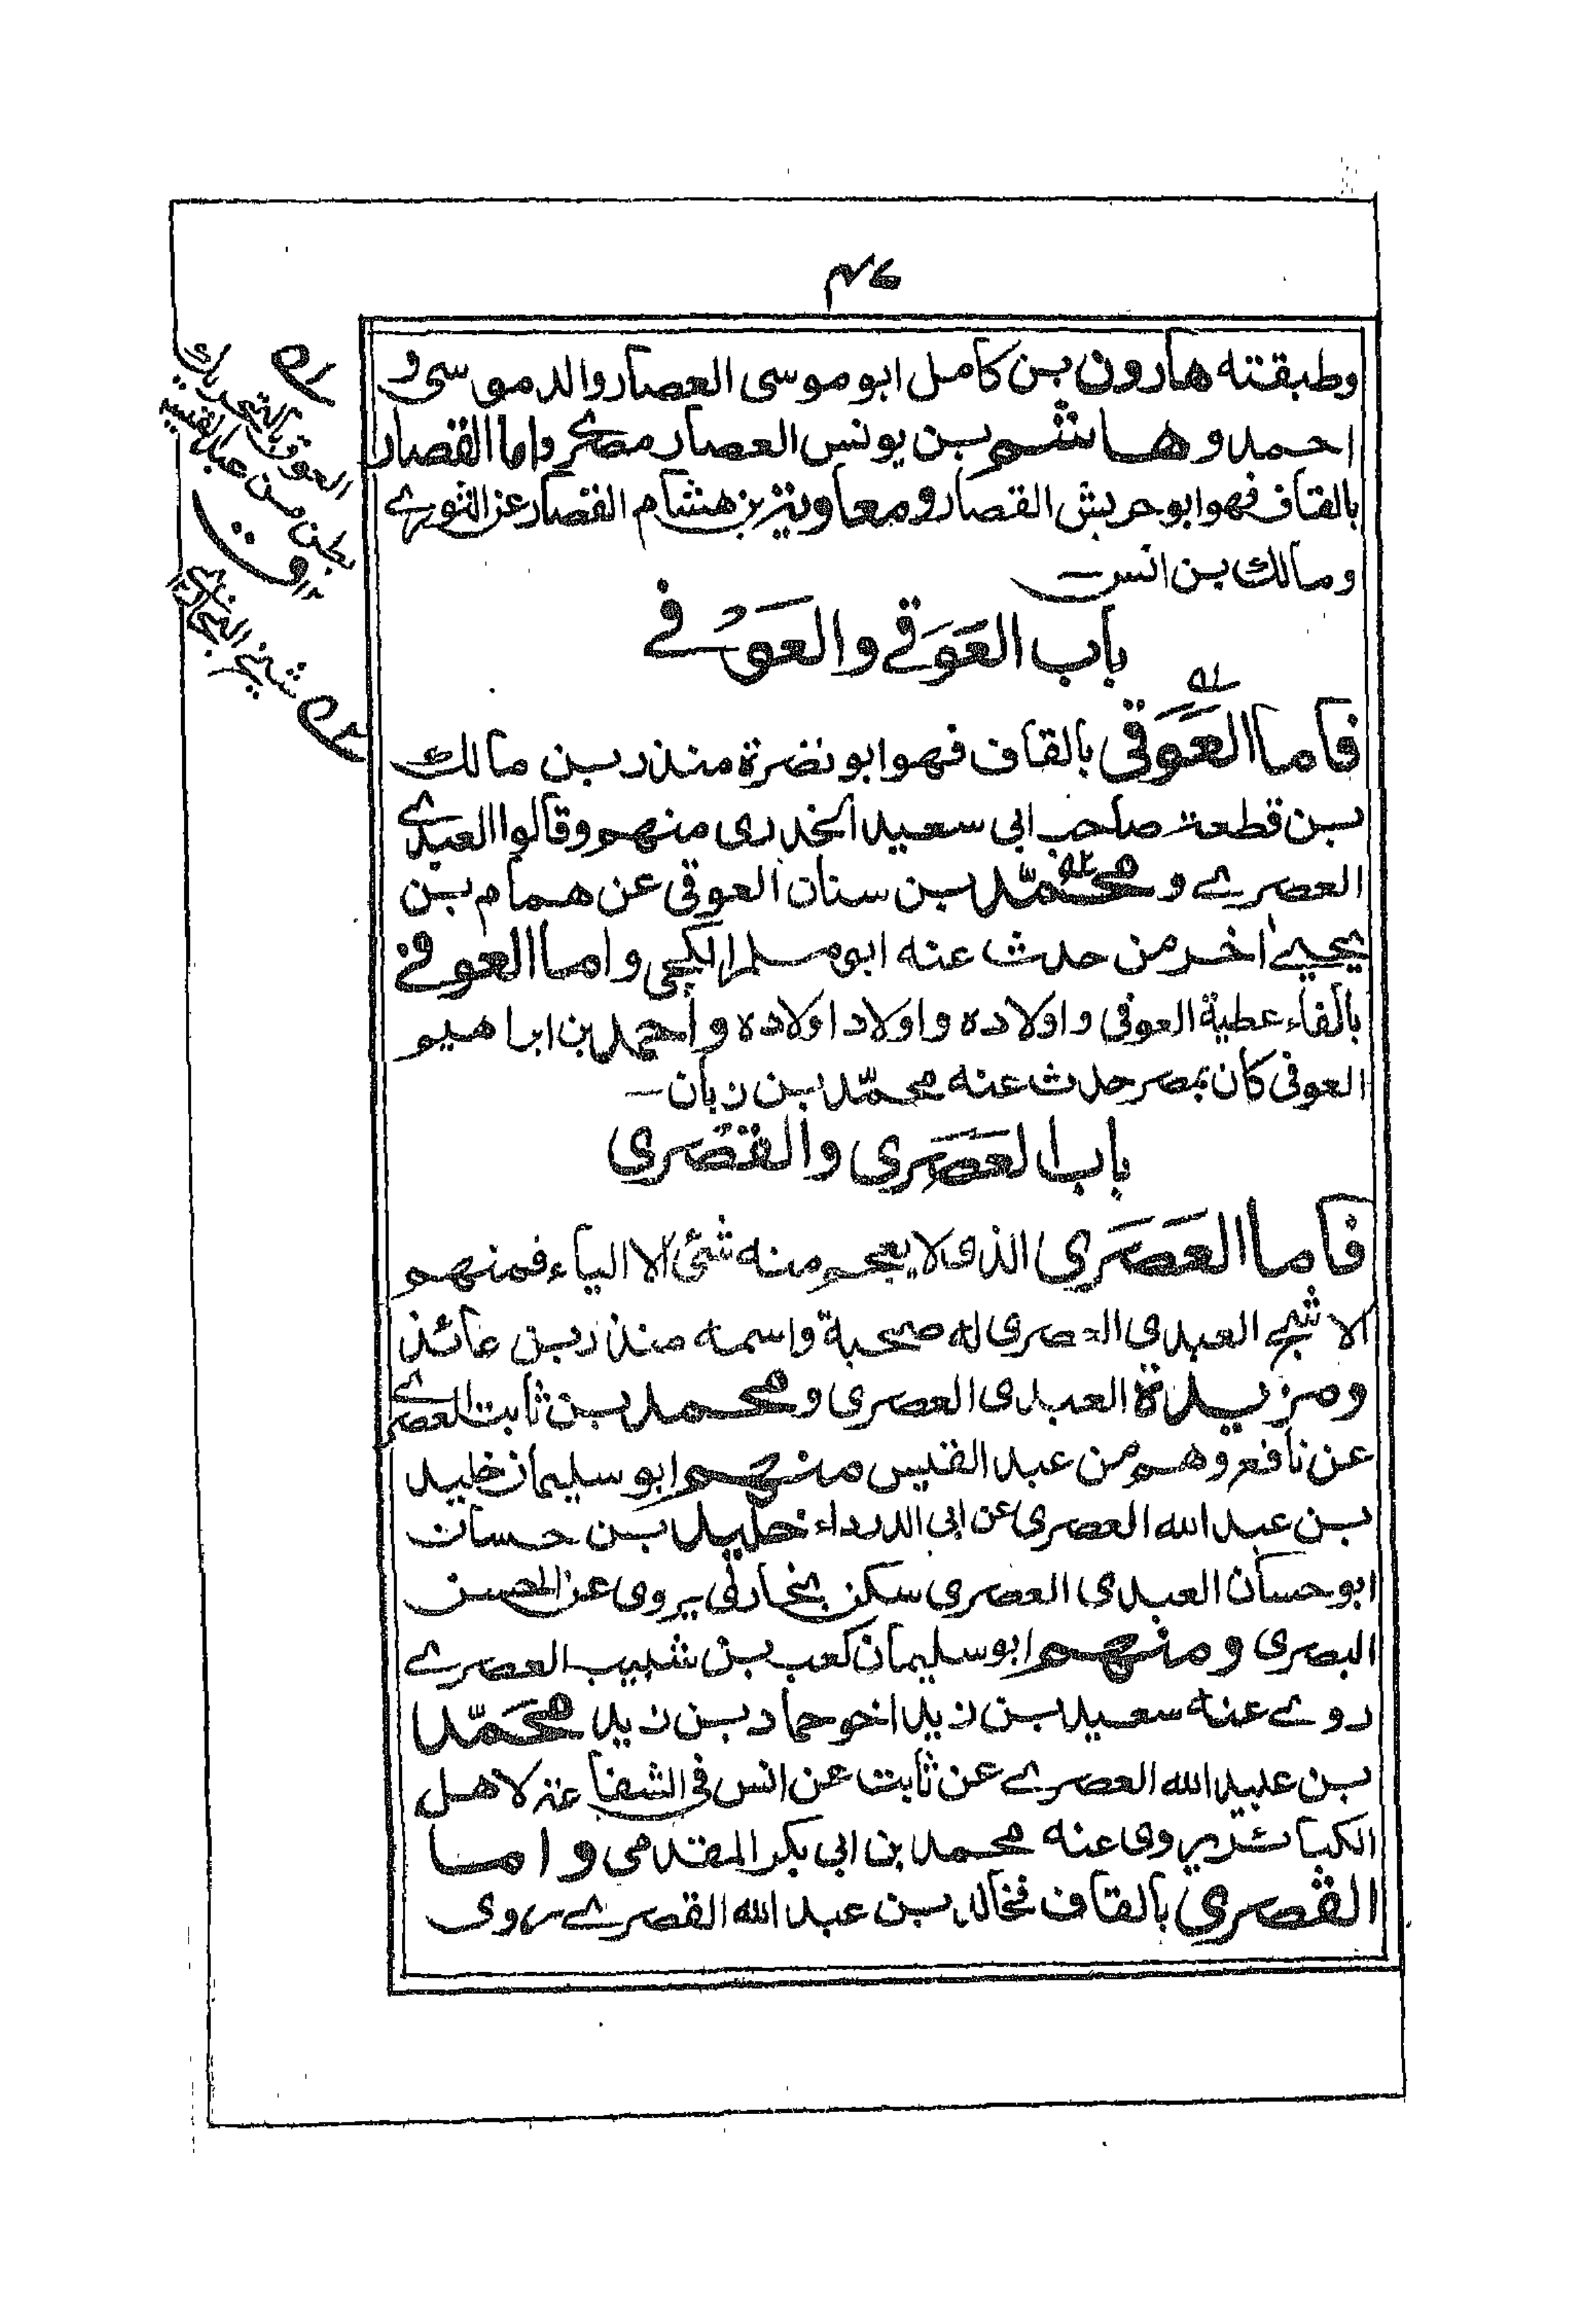 ٤٦
وطبقته هارون بن كامل ابو موسى العصار والد موسى و
احمد وهاشم بن يونس العصار مصري واما القصار
بالقاف فهو ابو حريش القصار ومعاوية بن هشام القصار عن الثوري
ومالك بن انس
باب العَوَقي والعَوْفي
فاما العَوَقي بالقاف فهو ابو نضرة منذر بن مالك
بن قطعة صاحب ابي سعيد الخدري منهم وقالوا العبدي
العصري ومحمّد بن سنان العوقي عن همام بن
يحيىٰ اخر من حدث عنه ابو مسلم الكجي واما العوفي
بالفاء عطية العوفي واولاده واولاد اولاده واحمد بن ابراهيم
العوفي كان بمصر حدث عنه محمّد بن زبان
باب العَصَري والقصري
فاما العَصَري الذي لا يعجم منه شئ الا الياء فمنهم
الاشج العبدي العصري له صحبة واسمه منذر بن عائذ
ومزيدة العبدي العصري ومحمد بن ثابت العصري
عن نافع وهم من عبد القيس منهم ابو سليمان خليد
بن عبد الله العصري عن ابي الدرداء خليد بن حسان
ابو حسان العبدي العصري سكن بخارى يروي عن الحسن
البصري ومنهم ابو سليمان كعب بن شبيب العصري
روى عنه سعيد بن زيد اخو حماد بن زيد محمّد
بن عبيد الله العصري عن ثابت عن انس في الشفاعة لاهل
الكبائر روى عنه محمد بن ابي بكر المقدمي واما
القصري بالقاف فخالد بن عبد الله القصري روى
العوق بالتحريك
بطن من عبد القيس
١٢ ق
شيخ البخاري ١٢